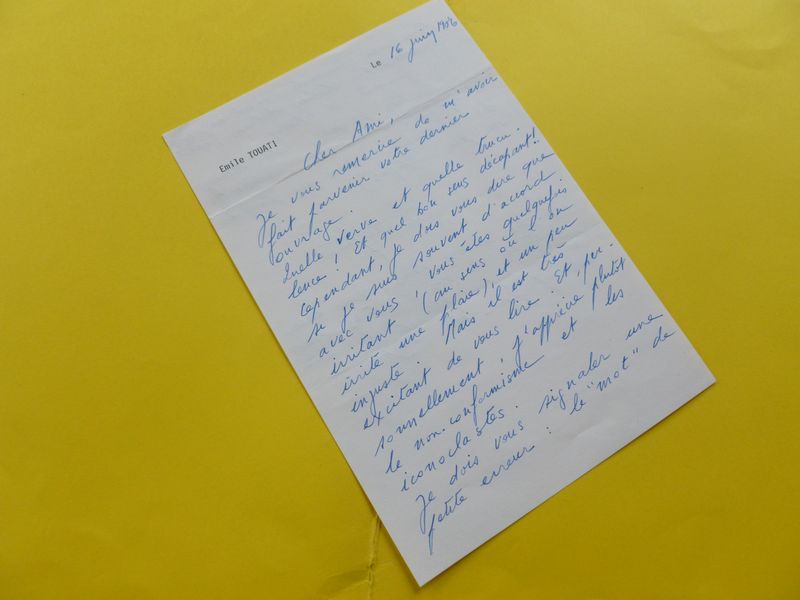 Le 16 juin 1986
Emile TOUATI
Cher Ami,
Je vous remercie de m'avoir
fait parvenir votre dernier
ouvrage.
Quelle verve et quelle trucu-
lence ! Et quel bon sens décapant !
Cependant, je dois vous dire que
si je suis souvent d'accord
avec vous, vous êtes quelquefois
irritant (au sens où l'on
irrite une plaie), et un peu
injuste. Mais il est très
excitant de vous lire. Et, per-
sonnellement, j'apprécie plutôt
le non-conformisme et les
iconoclastes.
Je dois vous signaler une
petite erreur : le "mot" de